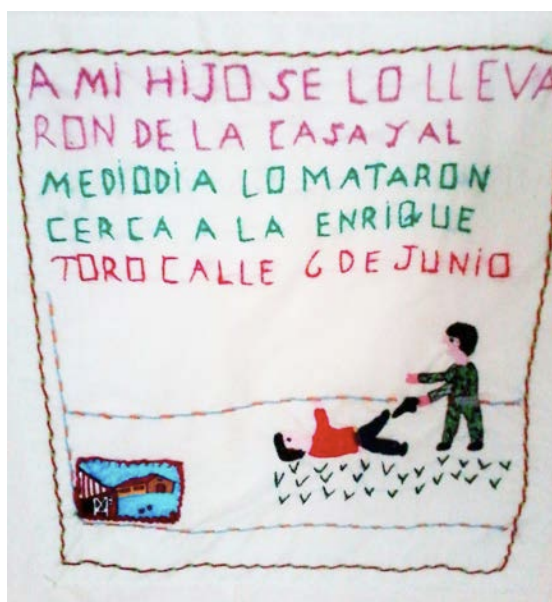 A MI HIJO SE LO LLEVA
RON DE LA CASA Y AL
MEDIODIA LO MATARON
CERCA A LA ENRIQUE
TORO CALLE 6 DE JUNIO